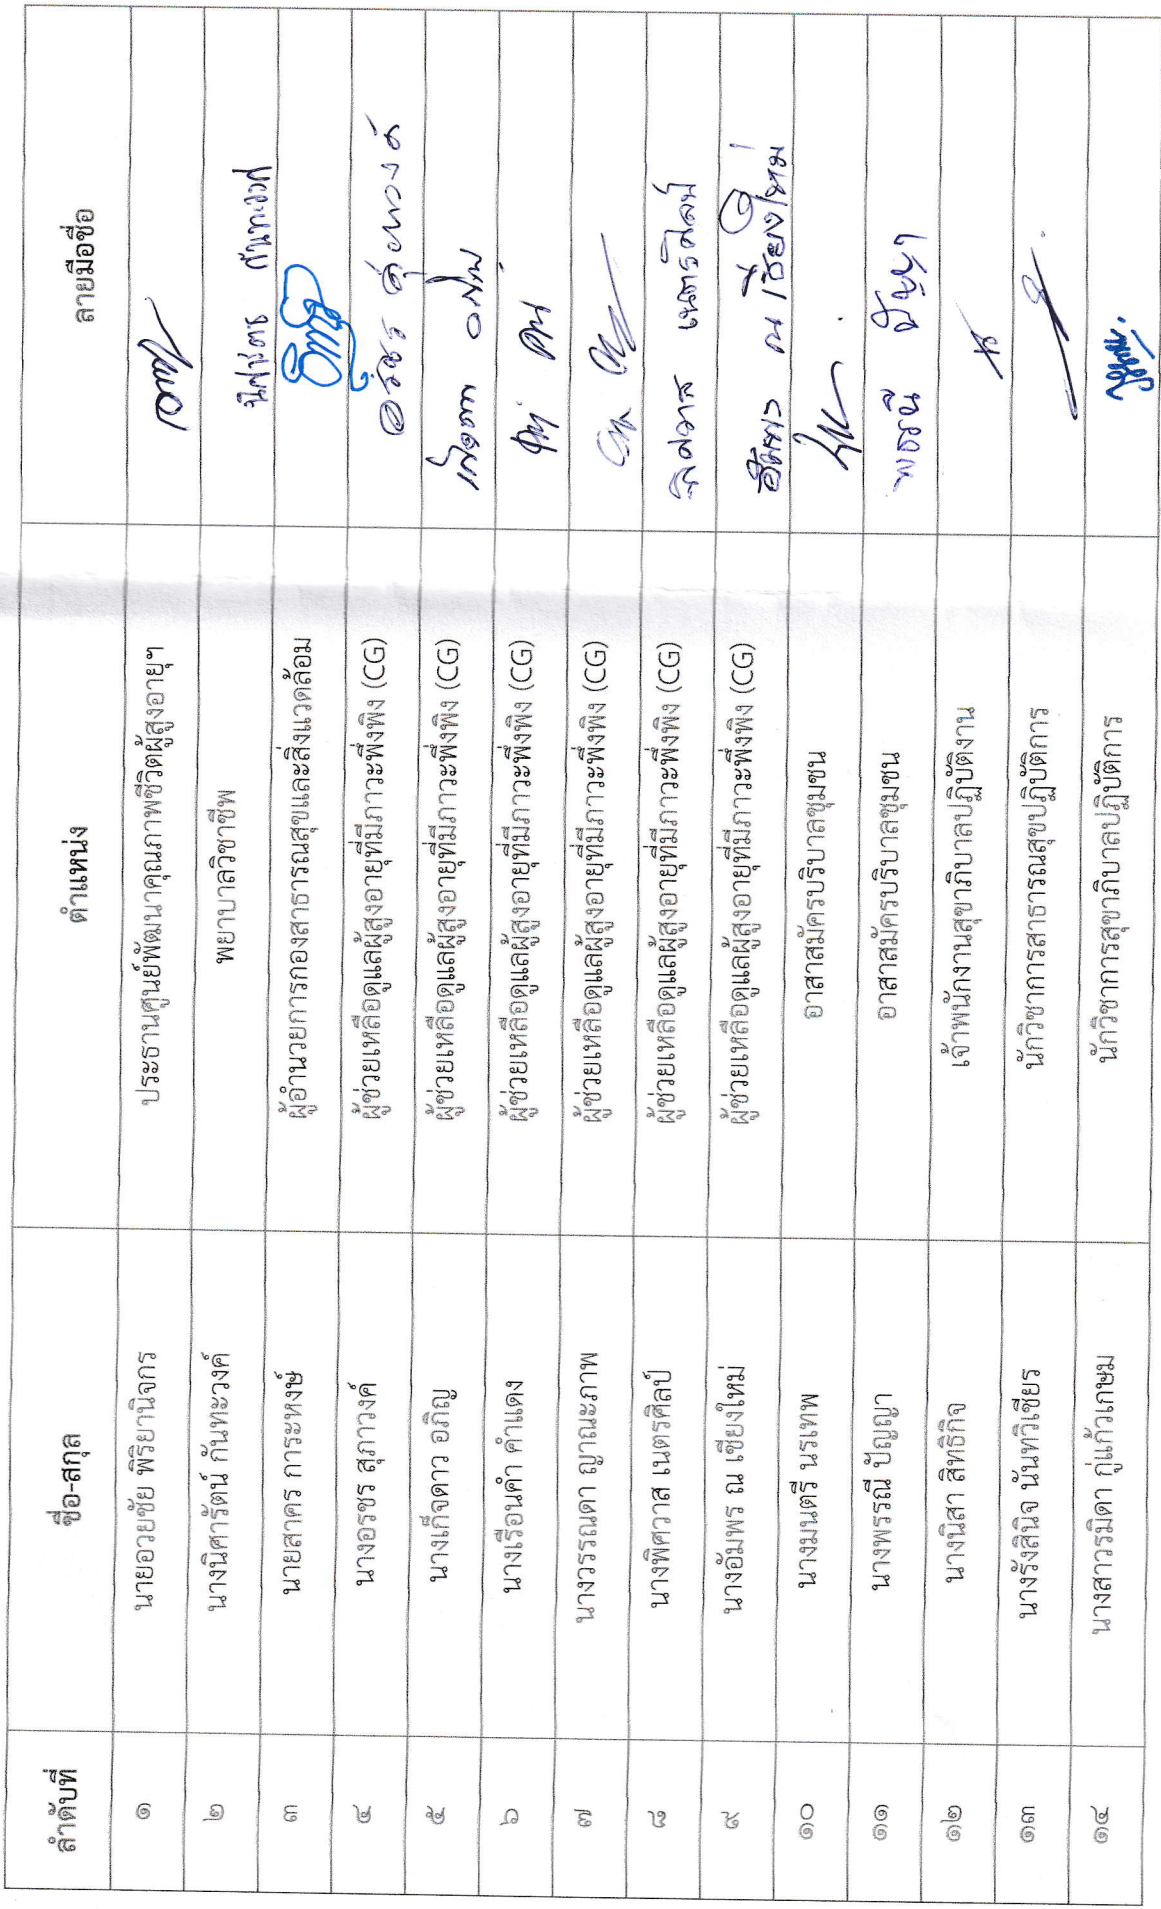 ลำดับที่ ชื่อ-สกุล ตำแหน่ง ลายมือชื่อ
๑ นายอวยชัย พิริยานิจกร ประธานศูนย์พัฒนาคุณภาพชีวิตผู้สูงอายุฯ
๒ นางนิศารัตน์ กันทะวงค์ พยาบาลวิชาชีพ
๓ นายสาคร การะหงษ์ ผู้อำนวยการกองสาธารณสุขและสิ่งแวดล้อม
๔ นางอรชร สุภาวงค์ ผู้ช่วยเหลือดูแลผู้สูงอายุที่มีภาวะพึ่งพิง (CG) อรชร สุภาวงค์
๕ นางเก็จดาว อภิญ ผู้ช่วยเหลือดูแลผู้สูงอายุที่มีภาวะพึ่งพิง (CG)
๖ นางเรือนคำ คำแดง ผู้ช่วยเหลือดูแลผู้สูงอายุที่มีภาวะพึ่งพิง (CG)
๗ นางวรรณดา ญาณะภาพ ผู้ช่วยเหลือดูแลผู้สูงอายุที่มีภาวะพึ่งพิง (CG)
๘ นางพิศวาส เนตรศิลป์ ผู้ช่วยเหลือดูแลผู้สูงอายุที่มีภาวะพึ่งพิง (CG) พิศวาส เนตรศิลป์
๙ นางอัมพร ณ เชียงใหม่ ผู้ช่วยเหลือดูแลผู้สูงอายุที่มีภาวะพึ่งพิง (CG) อัมพร ณ เชียงใหม่
๑๐ นางมนตรี นรเทพ อาสาสมัครบริบาลชุมชน
๑๑ นางพรรณี ปัญญา อาสาสมัครบริบาลชุมชน พรรณี ปัญญา
๑๒ นางนิสา สิทธิกิจ เจ้าพนักงานสุขาภิบาลปฏิบัติงาน
๑๓ นางรังสินิจ นันทวิเชียร นักวิชาการสาธารณสุขปฏิบัติการ
๑๔ นางสาวรมิดา กู่แก้วเกษม นักวิชาการสุขาภิบาลปฏิบัติการ